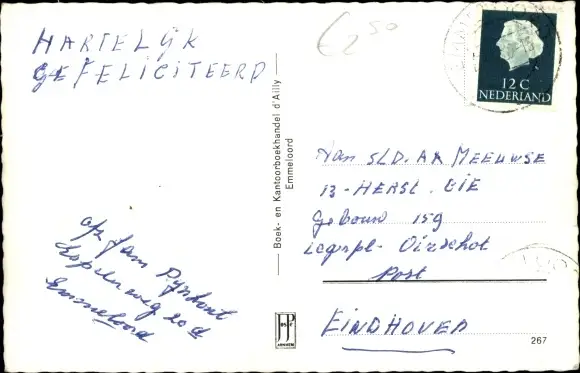 HARTELIJK
GEFELICITEERD
€2 50
12 C
NEDERLAND
Boek- en Kantoorboekhandel d'Ailly
Emmeloord
Aan SLD. AA MEEUWSE
13 - HERST. CIE
Gebouw 159
Legerpl. Oirschot
Post
EINDHOVEN
afz Jam
Espelerweg 20 d
Emmeloord
JP
ARNHEM
267